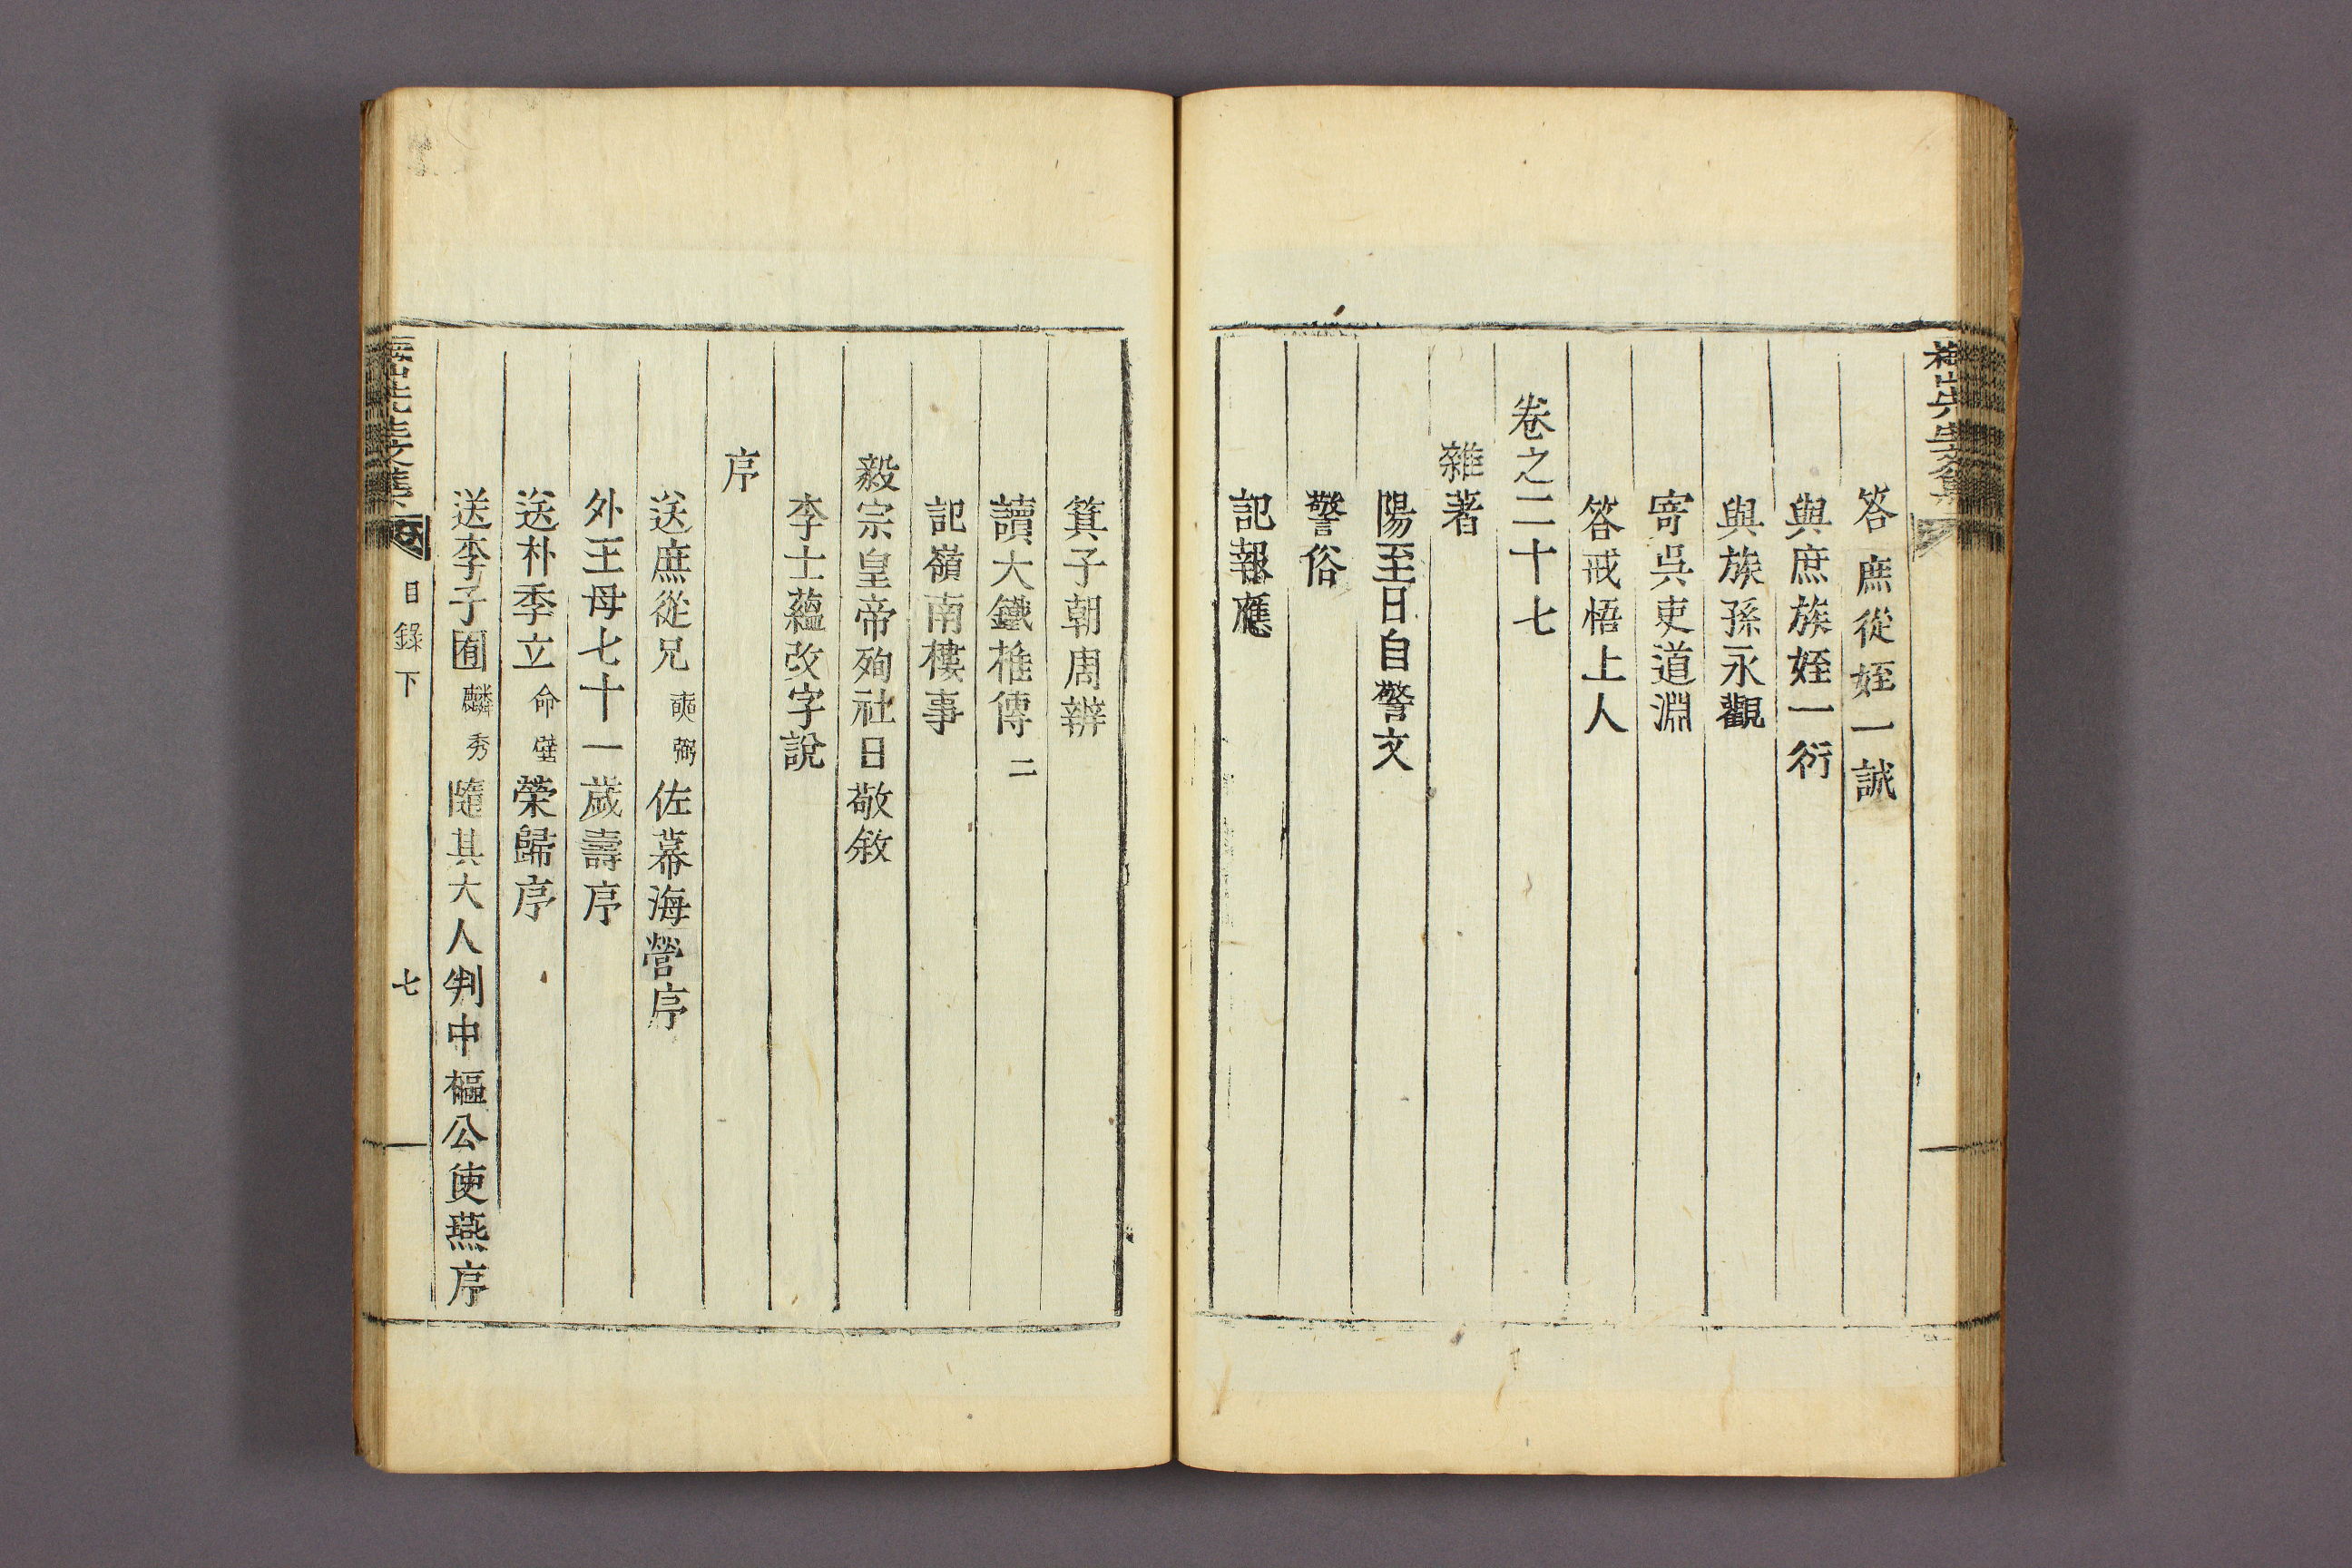 答庶從姪一誠
與庶族姪一衍
與族孫永觀
寄吳吏道淵
答戒悟上人
卷之二十七
雜著
陽至日自警文
警俗
記報應
箕子朝周辨
讀大鐵椎傳二
記嶺南樓事
毅宗皇帝殉社日敬敘
李士蘊改字說
序
送庶從兄奭弼佐幕海營序
外王母七十一歲壽序
送朴季立命璧榮歸序
送李子囿麟秀隨其大人判中樞公使燕序
目錄下
七